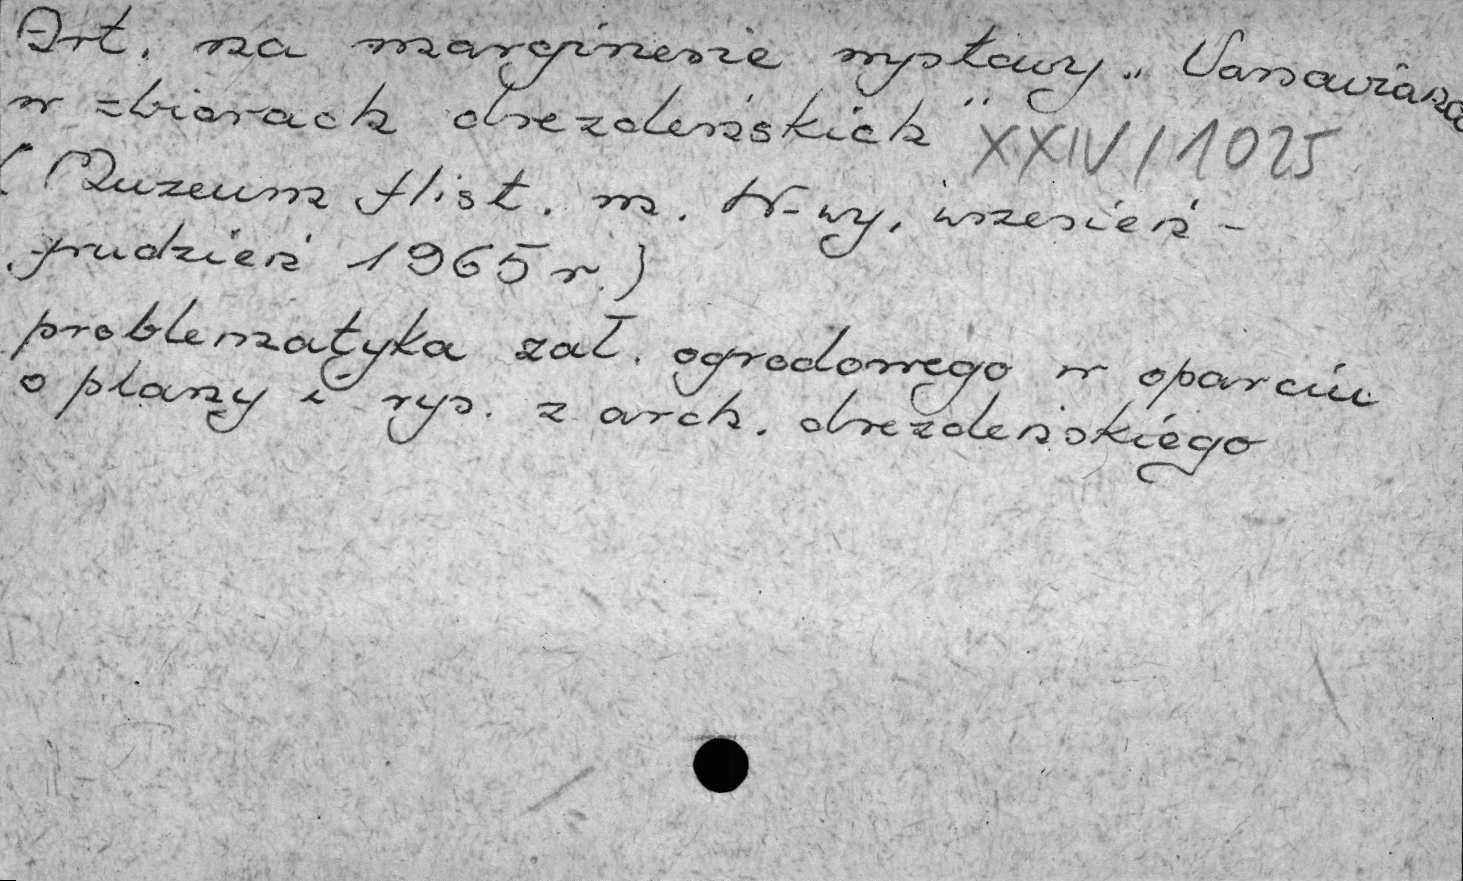 Art. na marginesie wystawy „Varsaviana
w zbiorach drezdeńskich" XXIV/1025
(Muzeum Hist. m. W-wy, wrzesień -
grudzień 1965 r.)
problematyka zał. ogrodowego w oparciu
o plany i rys. z arch. drezdeńskiego